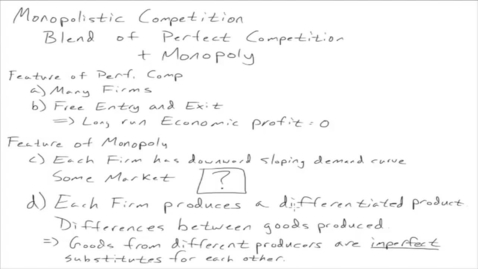 Monopolistic Competition
Blend of Perfect Competition
+ Monopoly
Feature of Perf. Comp
a) Many Firms
b) Free Entry and Exit
=> Long run Economic profit = 0
Feature of Monopoly
c) Each Firm has downward sloping demand curve
Some Market ?
d) Each Firm produces a differentiated product
Differences between goods produced.
=> Goods from different producers are inperfect
substitutes for each other.